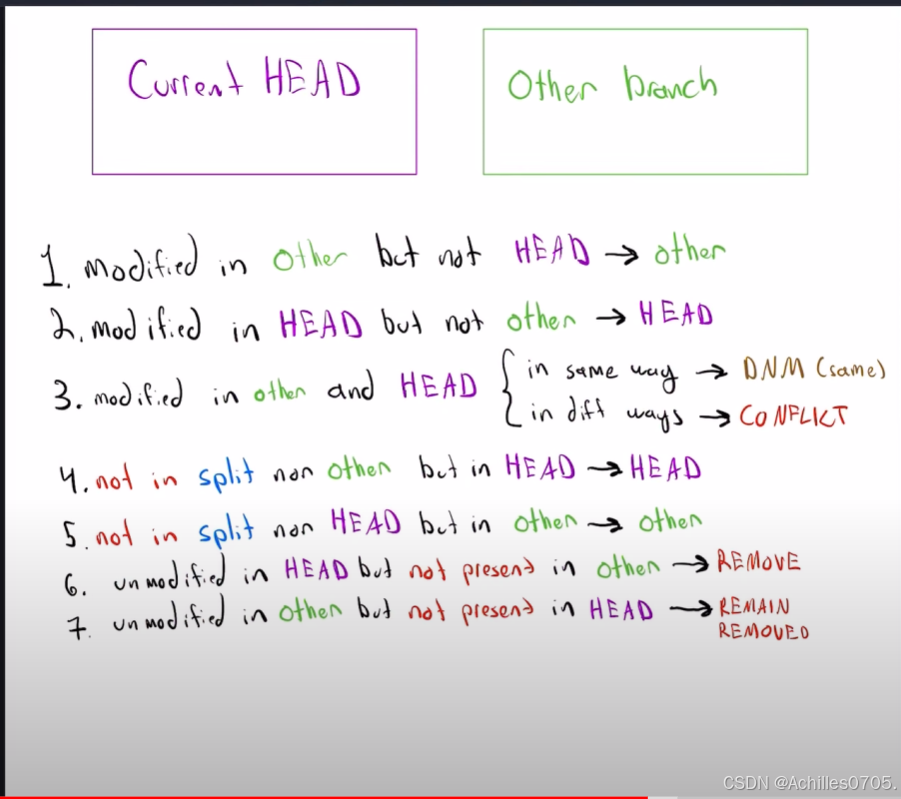 Current HEAD
Other branch
1. modified in other but not HEAD → other
2. modified in HEAD but not other → HEAD
3. modified in other and HEAD { in same way → DNM (same)
in diff ways → CONFLICT
4. not in split nor other but in HEAD → HEAD
5. not in split nor HEAD but in other → other
6. unmodified in HEAD but not present in other → REMOVE
7. unmodified in other but not present in HEAD → REMAIN
REMOVED
CSDN @Achilles0705.